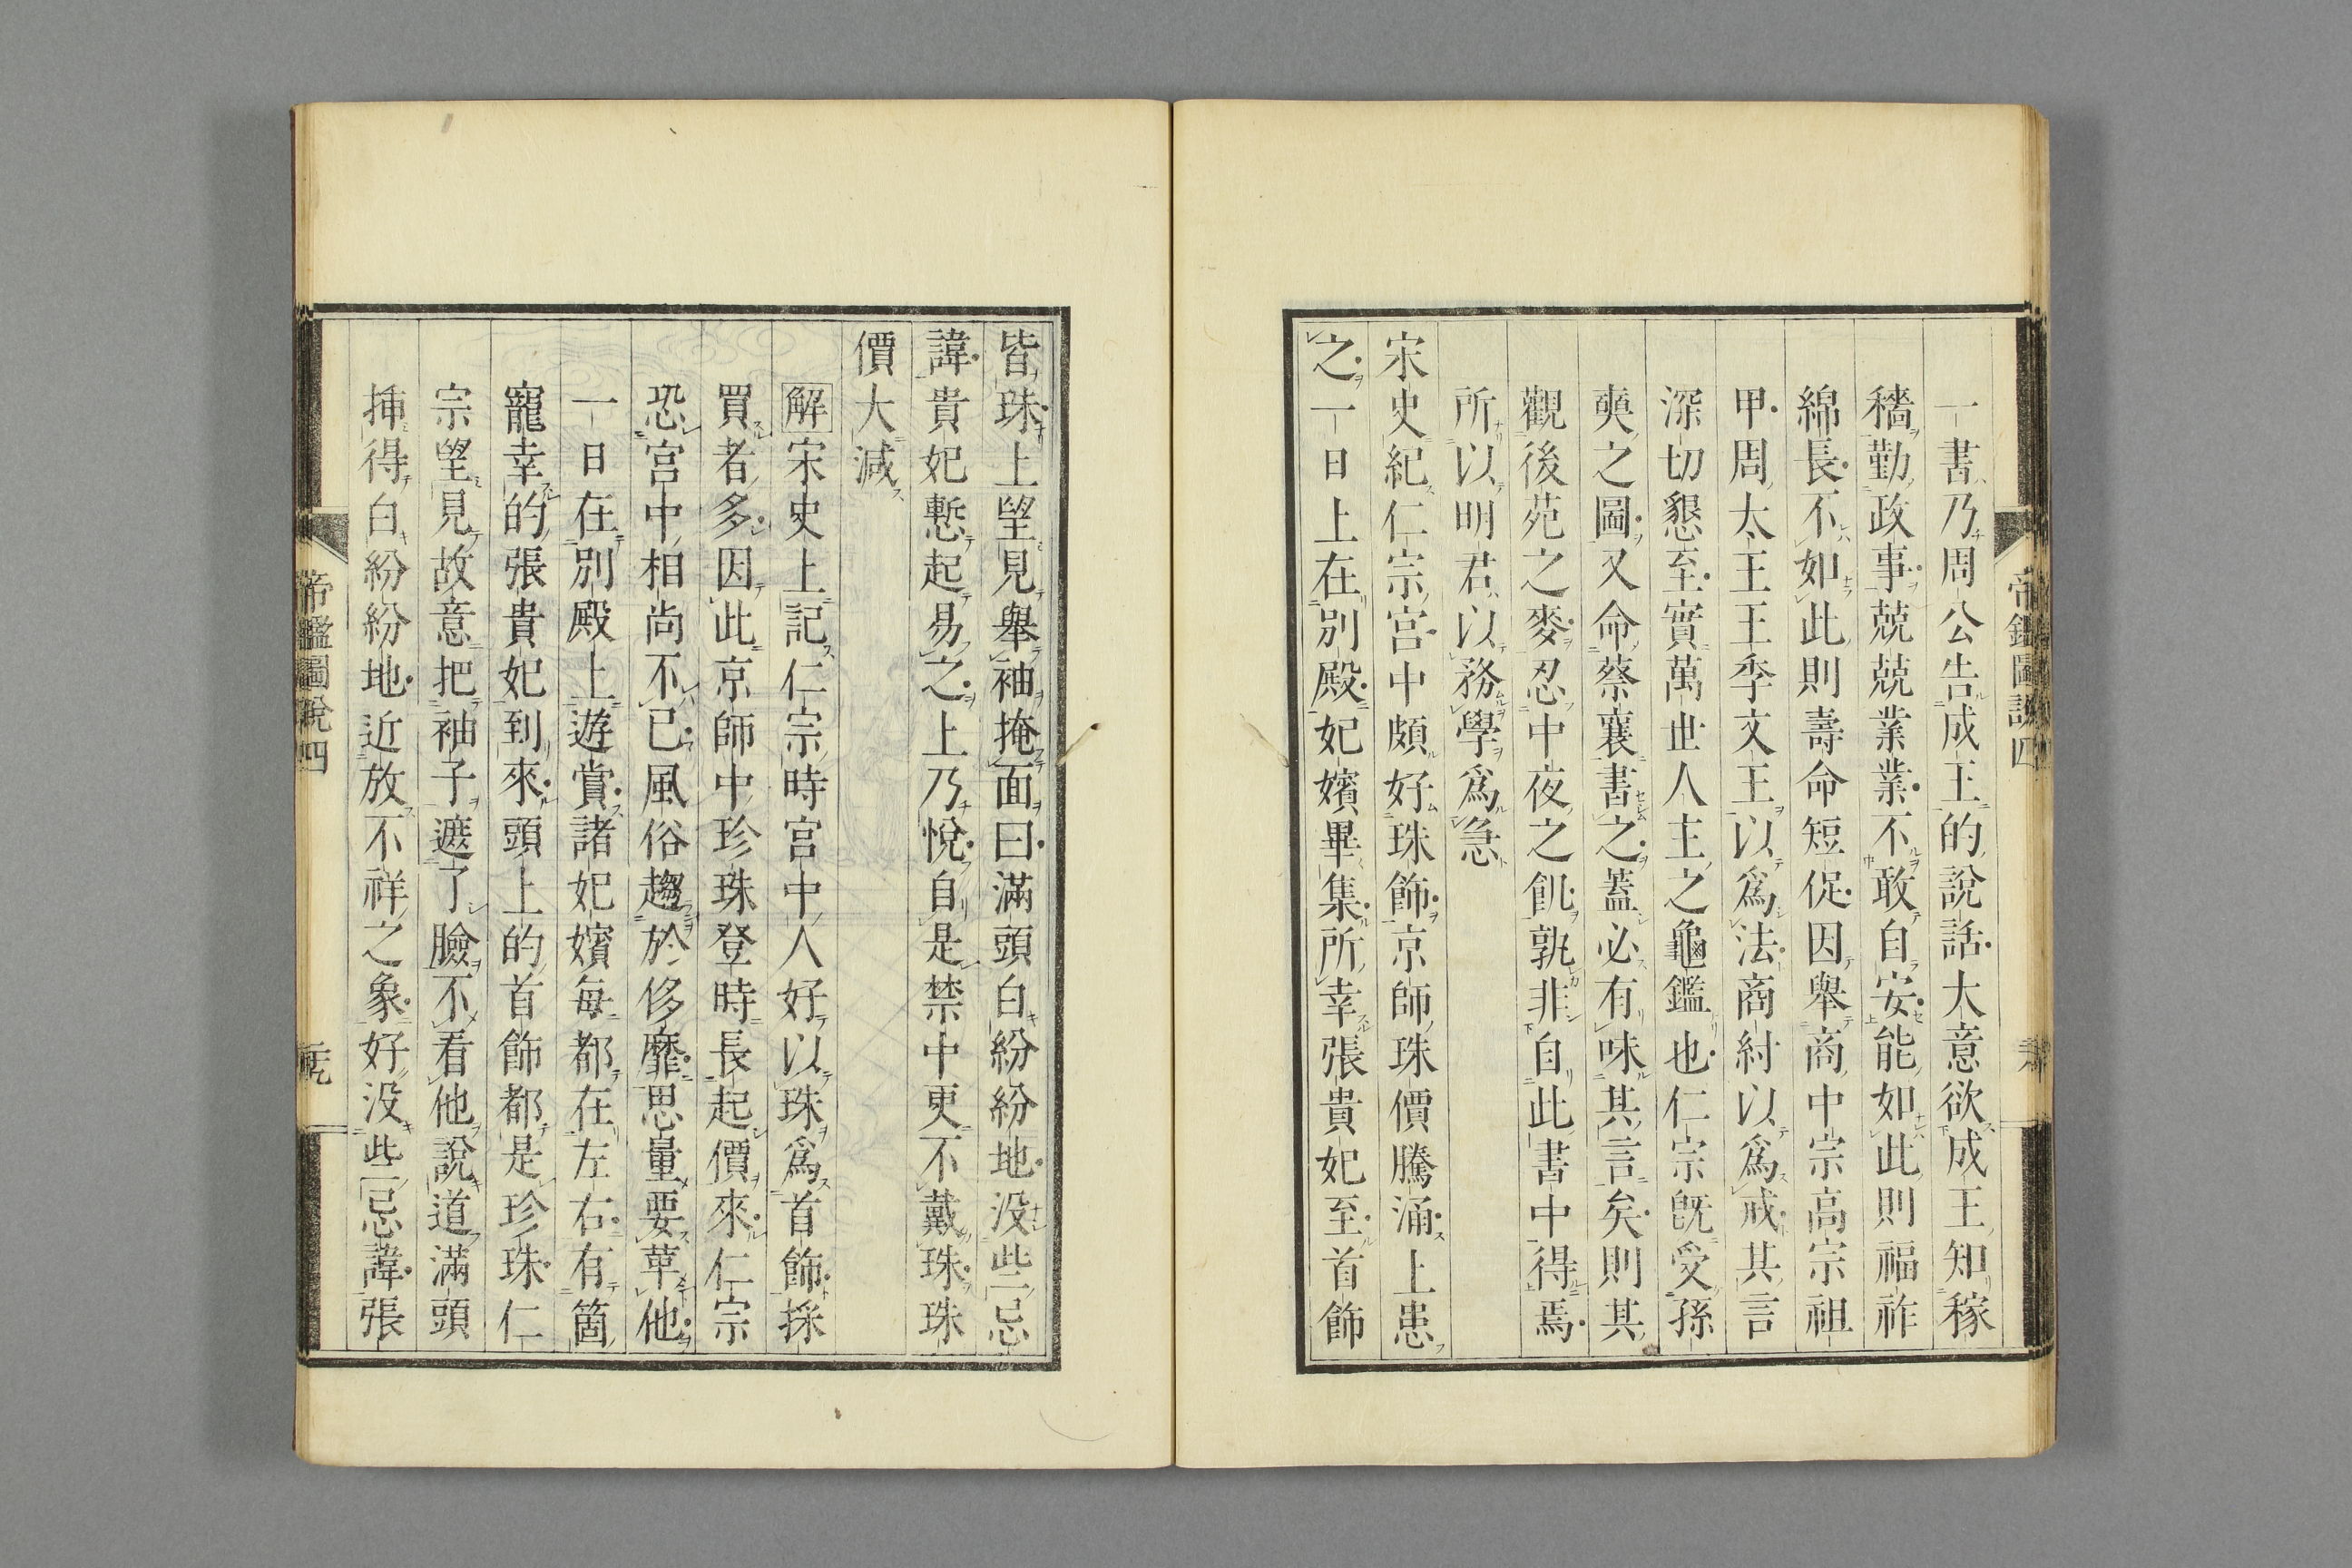 一書乃周公告成王的說話大意欲成王知稼
穡勤政事兢兢業業不敢自安能如此則福祚
綿長不如此則壽命短促因舉商中宗高宗祖
甲周太王王季文王以爲法商紂以爲戒其言
深切懇至實萬世人主之龜鑑也仁宗既受孫
奭之圖又命蔡襄書之蓋必有味其言矣則其
觀後苑之麥忍中夜之飢孰非自此書中得焉
所以明君以務學爲急
宋史紀仁宗宮中頗好珠飾京師珠價騰涌上患
之一日上在別殿妃嬪畢集所幸張貴妃至首飾
帝鑑圖說四
皆珠上望見舉袖掩面曰滿頭白紛紛地没些忌
諱貴妃慙起易之上乃悅自是禁中更不戴珠珠
價大減
解宋史上記仁宗時宮中人好以珠爲首飾採
買者多因此京師中珍珠登時長起價來仁宗
恐宮中相尚不已風俗趨於侈靡思量要革他
一日在別殿上遊賞諸妃嬪每都在左右有箇
寵幸的張貴妃到來頭上的首飾都是珍珠仁
宗望見故意把袖子遮了臉不看他說道滿頭
揷得白紛紛地近放不祥之象好没些忌諱張
帝鑑圖說四